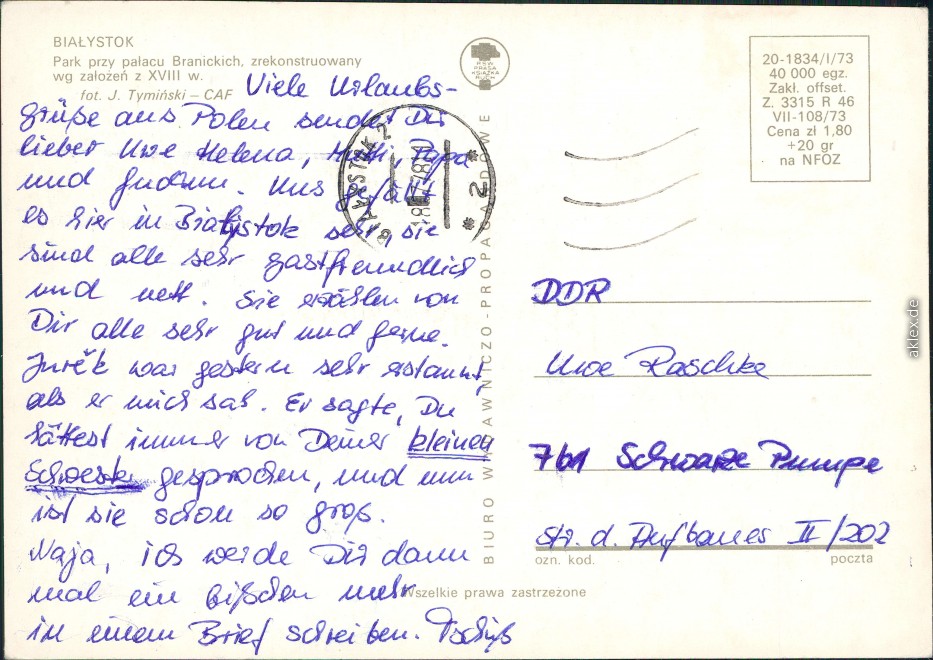 BIAŁYSTOK
Park przy pałacu Branickich, zrekonstruowany
wg założeń z XVIII w.
fot. J. Tymiński – CAF
Viele Urlaubs-
grüße aus Polen sendet Dir
lieber Uwe Helena, Mutti, Papa
und Gudrun. Uns gefällt
es hier in Białystok sehr, sie
sind alle sehr gastfreundlich
und nett. Sie erzählen von
Dir alle sehr gut und gerne.
Jurek war gestern sehr erstaunt,
als er mich sah. Er sagte, Du
hättest immer von Deiner kleinen
Schwester gesprochen, und nun
ist sie schon so groß.
Naja, ich werde Dir dann
mal ein bißchen mehr
in einem Brief schreiben. Tschüß
RSW
PRASA
KSIĄŻKA
RUCH
BIAŁYSTOK 2
* 2 *
BIURO WYDAWNICZO-PROPAGANDOWE
20-1834/I/73
40 000 egz.
Zakł. offset.
Z. 3315 R 46
VII-108/73
Cena zł 1,80
+20 gr
na NFOZ
DDR
Uwe Raschke
761 Schwarze Pumpe
Str. d. Aufbaues II/202
ozn. kod.
poczta
Wszelkie prawa zastrzeżone
aklex.de